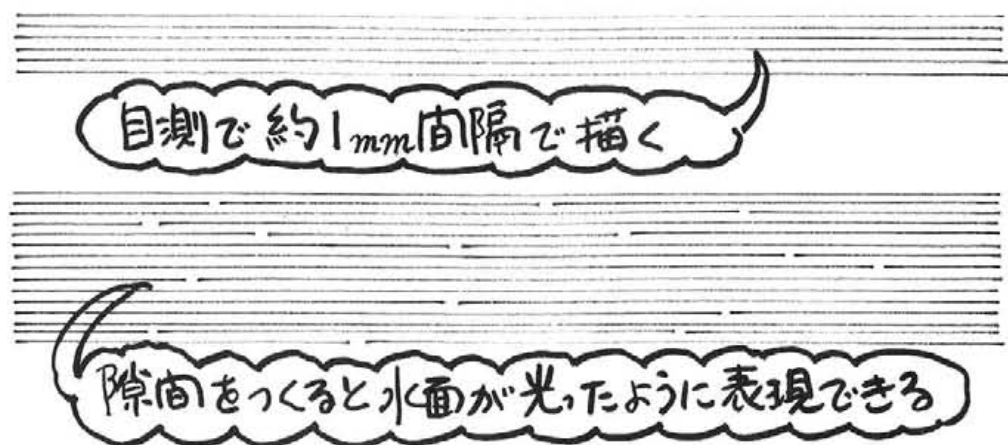 目測で約1mm間隔で描く
隙間をつくると水面が光ったように表現できる